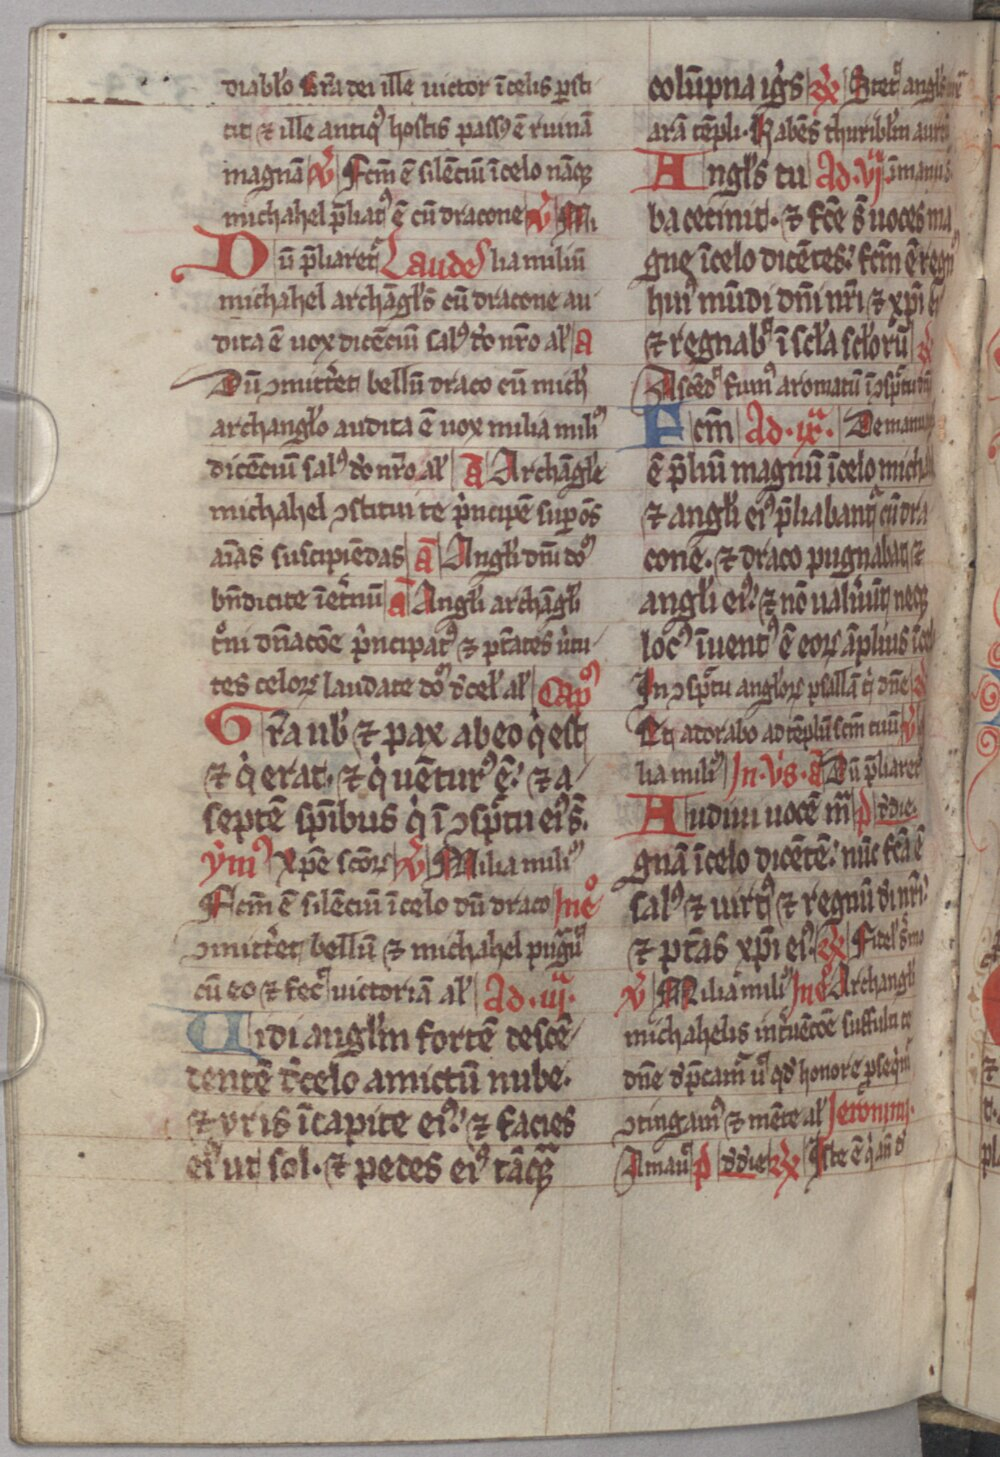 diabl'o Gr̄a dei ille uictor īcelis ꝑsti
tit ⁊ ille antiqꝰ hostis passꝰ ē ruinā
magnā v̄ Fcm̄ ē silēciū īcelo nāqꝫ
michahel p̄liatꝰ ē cū dracone v̄ Mi
Dū p̄liaret᷑ Laudes lia miliū
michahel archāgl's cū dracone au
dita ē uox dicēciū salꝰ d'o nr̄o al' a
Dū ꝯmitt'et bellū draco cū mich'
archangl'o audita ē uox milia miliꝰ
dicēciū salꝰ d'o nr̄o al' ā Archāgl'e
michahel ꝯstitui te p'ncipē suꝑ oēs
aīas suscipiēdas ā Angl'i dn̄i doꝰ
bn̄dicite īet'nū ā Angl'i archāgl'i
t'ni dn̄acōe p'ncipatꝰ ⁊ ptātes u'tu
tes celoꝝ laudate doꝰ d'cel' al' Capꝰ
Gr̄a uob' ⁊ pax ab eo q' est
⁊ q' erat. ⁊ q' uētur̉ꝰ ē. ⁊ a
septē spībus q' ī ꝯspc̄tu eiꝰ s̄.
ym̄ꝰ Xp̄e sc̄oꝝ v̄ Milia miliꝰ
Fcm̄ ē silēciū īcelo dū draco In e°
ꝯmitt'et bellū ⁊ michahel pug̉uꝰ
cū eo ⁊ fec' uictoriā al' Ad .iij.
Uidi angl'm fortē descē
dentē d'celo amictū nube.
⁊ yris īcapite eiꝰ. ⁊ facies
eiꝰ ut sol. ⁊ pedes eiꝰ tāqꝫ
colūpna ig's ℞ Stet' angl's iux̄
arā tēpli. Habēs thuribl'm aurū
Angl's tu Ad .vj. īmanu s.
ba cecinit. ⁊ fc̄e s̄ uoces ma
gne īcelo dicētes. fcm̄ ē regnū
huiꝰ mūdi dn̄i nr̄i ⁊ xp̄i
⁊ regnab' ī scl'a scl'oꝝ
Ascēd' fumꝰ aromatū ī ꝯspc̄tu dn̄i
Fcm̄ Ad .ix. De manu
ē p̄liū magnū īcelo mich
⁊ angl'i eiꝰ p̄liabant᷑ cū dra
cone. ⁊ draco pugnabat ⁊
angl'i eiꝰ. ⁊ nō ualuer̄ūt neqꝫ
locꝰ īuentꝰ ē eoꝝ āplius īcel
In ꝯspc̄tu angl'oꝝ psallā t' dn̄e
Et adorabo ad tēplū scm̄ tuū v̄
lia miliꝰ In .vs. ā Dū p̄liaret᷑
Audiui uocē m̄ p d'die
gnā īcelo dicētē. nūc fc̄a ē
salꝰ ⁊ uirtꝰ ⁊ regnū di nr̄i.
⁊ ptās xp̄i eiꝰ. ℞ Fidel' s'mo
v̄ Milia miliꝰ In e° Archangl'i
michahelis int'uēcōe suffulti te
dn̄e d'pcam᷑ uꝰ qd' honore ꝓseq'm᷑
ꝯtingamꝰ ⁊ mēte al' Jeronimi.
Amauꝰ p d'die ℞ Iste ē q' añ d'